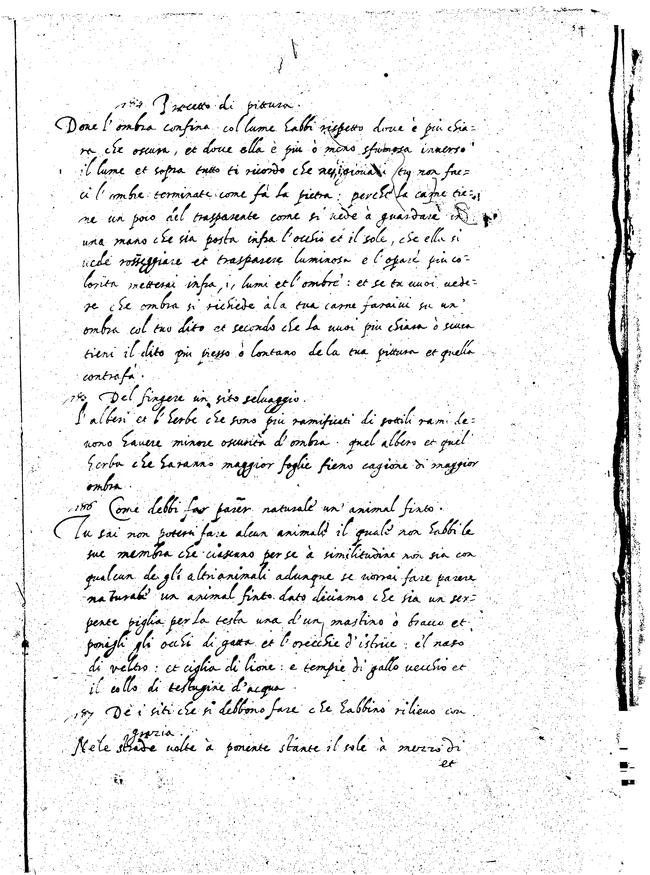 54
184. Precetto di pittura.
Doue l'ombra confina col lume habbi rispetto doue è piu chia=
ra che oscura, et doue ella è piu ò meno sfumosa inuerso
il lume et sopra tutto ti ricordo che ne tu non fac=
ci l'ombre terminate come fà la pietra: perche la carne tie=
ne un poco del trasparente come si uede à guardare in
una mano che sia posta infra l'occhio et il sole, che ella si
uede rosseggiare et trasparere luminosa e l' piu co=
lorita metterai infra, i, lumi et l'ombre: et se tu uuoi uede=
re che ombra si richiede àla tua carne faraiui su un'
ombra col tuo dito et secondo che la uuoi piu chiara ò scura
tieni il dito piu presso ò lontano dela tua pittura et quella
contrafà.
Del fingere un sito seluaggio.
l'alberi et l'herbe che sono piu ramificati di sottili rami de=
uono hauere minore oscurità d'ombra. quel albero et quel'
herba che haranno maggior foglie fieno cagione di maggior
ombra.
186 Come debbi far parer naturale un' animal finto.
Tu sai non potersi fare alcun animale il quale non habbi le
sue membra che ciascuno per se à similitudine non sia con
qualcun degli altri animali adunque se uorrai fare parere
naturale un animal finto. dato diciamo che sia un ser=
pente piglia per la testa una d'un mastino ò bracco et
ponigli gli occhi di gatta et l'orecchie d'istrice: el naso
di veltro: et ciglia di lione: e tempie di gallo uecchio et
il collo di testugine d'acqua.
187 De i siti che si debbono fare che habbino rilieuo con
grazia.
Nele strade uolte à ponente stante il sole à mezzo di
et